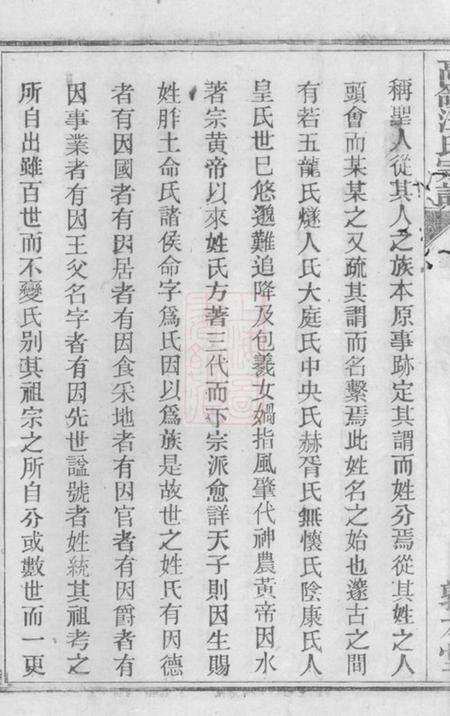 稱聖人從其人之族本原事跡定其謂而姓分焉從其姓之人
頭會而某某之又疏其謂而名繫焉此姓名之始也邃古之間
有若五龍氏燧人氏大庭氏中央氏赫胥氏無懷氏陰康氏人
皇氏世已悠邈難追降及包羲女媧指風肇代神農黃帝因水
著宗黄帝以來姓氏方著三代而下宗派愈詳天子則因生賜
姓胙土命氏諸侯命字爲氏因以爲族是故世之姓氏有因德
者有因國者有因居者有因食采地者有因官者有因爵者有
因事業者有因王父名字者有因先世謚號者姓統其祖考之
所自出雖百世而不變氏別其祖宗之所自分或數世而一更